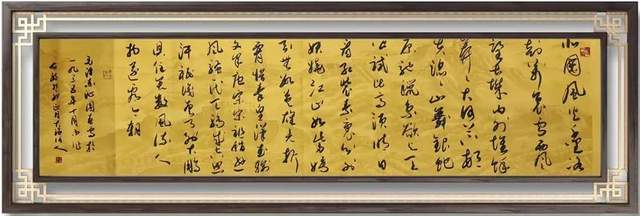 北國風光千里冰
封萬里雪飄
望長城内外惟餘
莽莽大河上下頓
失滔滔山舞銀蛇
原馳蠟象欲與天
公試比高須晴日
看紅裝素裹分外
妖嬈江山如此多嬌
引無數英雄競折
腰惜秦皇漢武略輸
文采唐宗宋祖稍遜
風騷一代天驕成吉思
汗祇識彎弓射大雕
俱往矣數風流人
物還看今朝
毛澤東沁園春雪